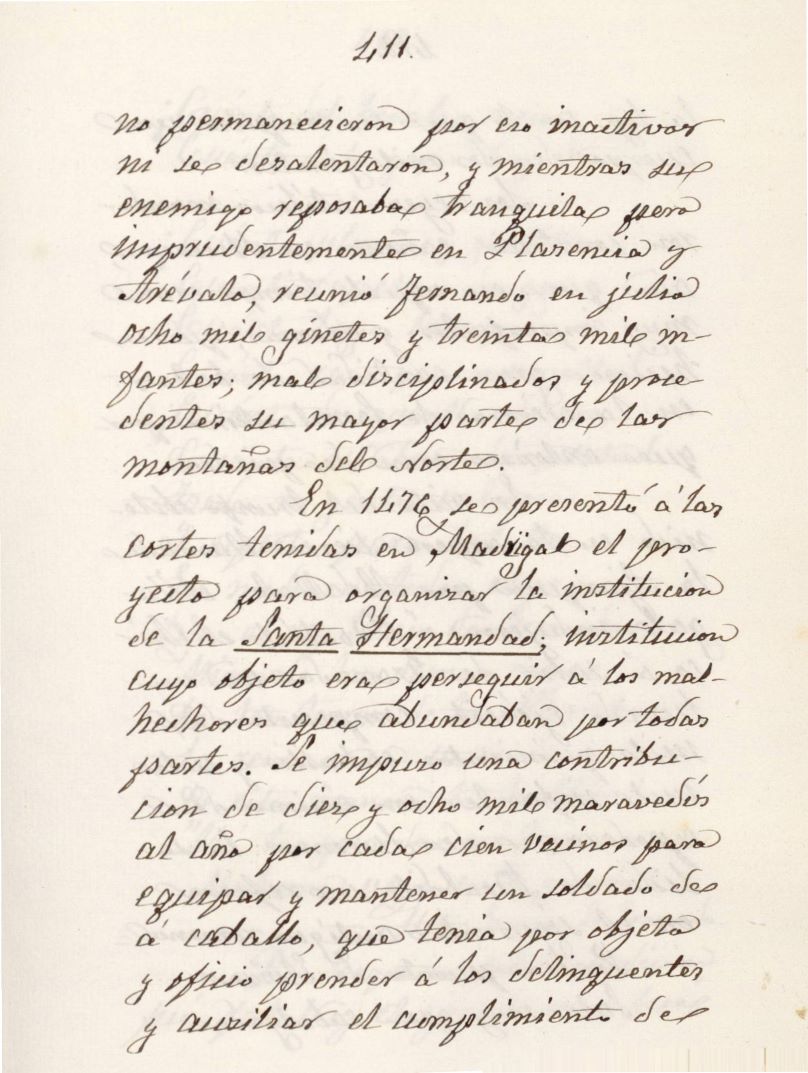 411.
no permanecieron por eso inactivos
ni se desalentaron, y mientras su
enemigo reposaba tranquila pero
imprudentemente en Plasencia y
Arévalo, reunió Fernando en julio
ocho mil ginetes y treinta mil in-
fantes; mal disciplinados y proce-
dentes su mayor parte de las
montañas del Norte.
En 1476 se presentó á las
cortes tenidas en Madrigal el pro-
yecto para organizar la institucion
de la Santa Hermandad; institucion
cuyo objeto era perseguir á los mal-
hechores que abundaban por todas
partes. Se impuso una contribu-
cion de diez y ocho mil maravedís
al año por cada cien vecinos para
equipar y mantener un soldado de
á caballo, que tenia por objeto
y oficio prender á los delinquentes
y auxiliar el cumplimiento de